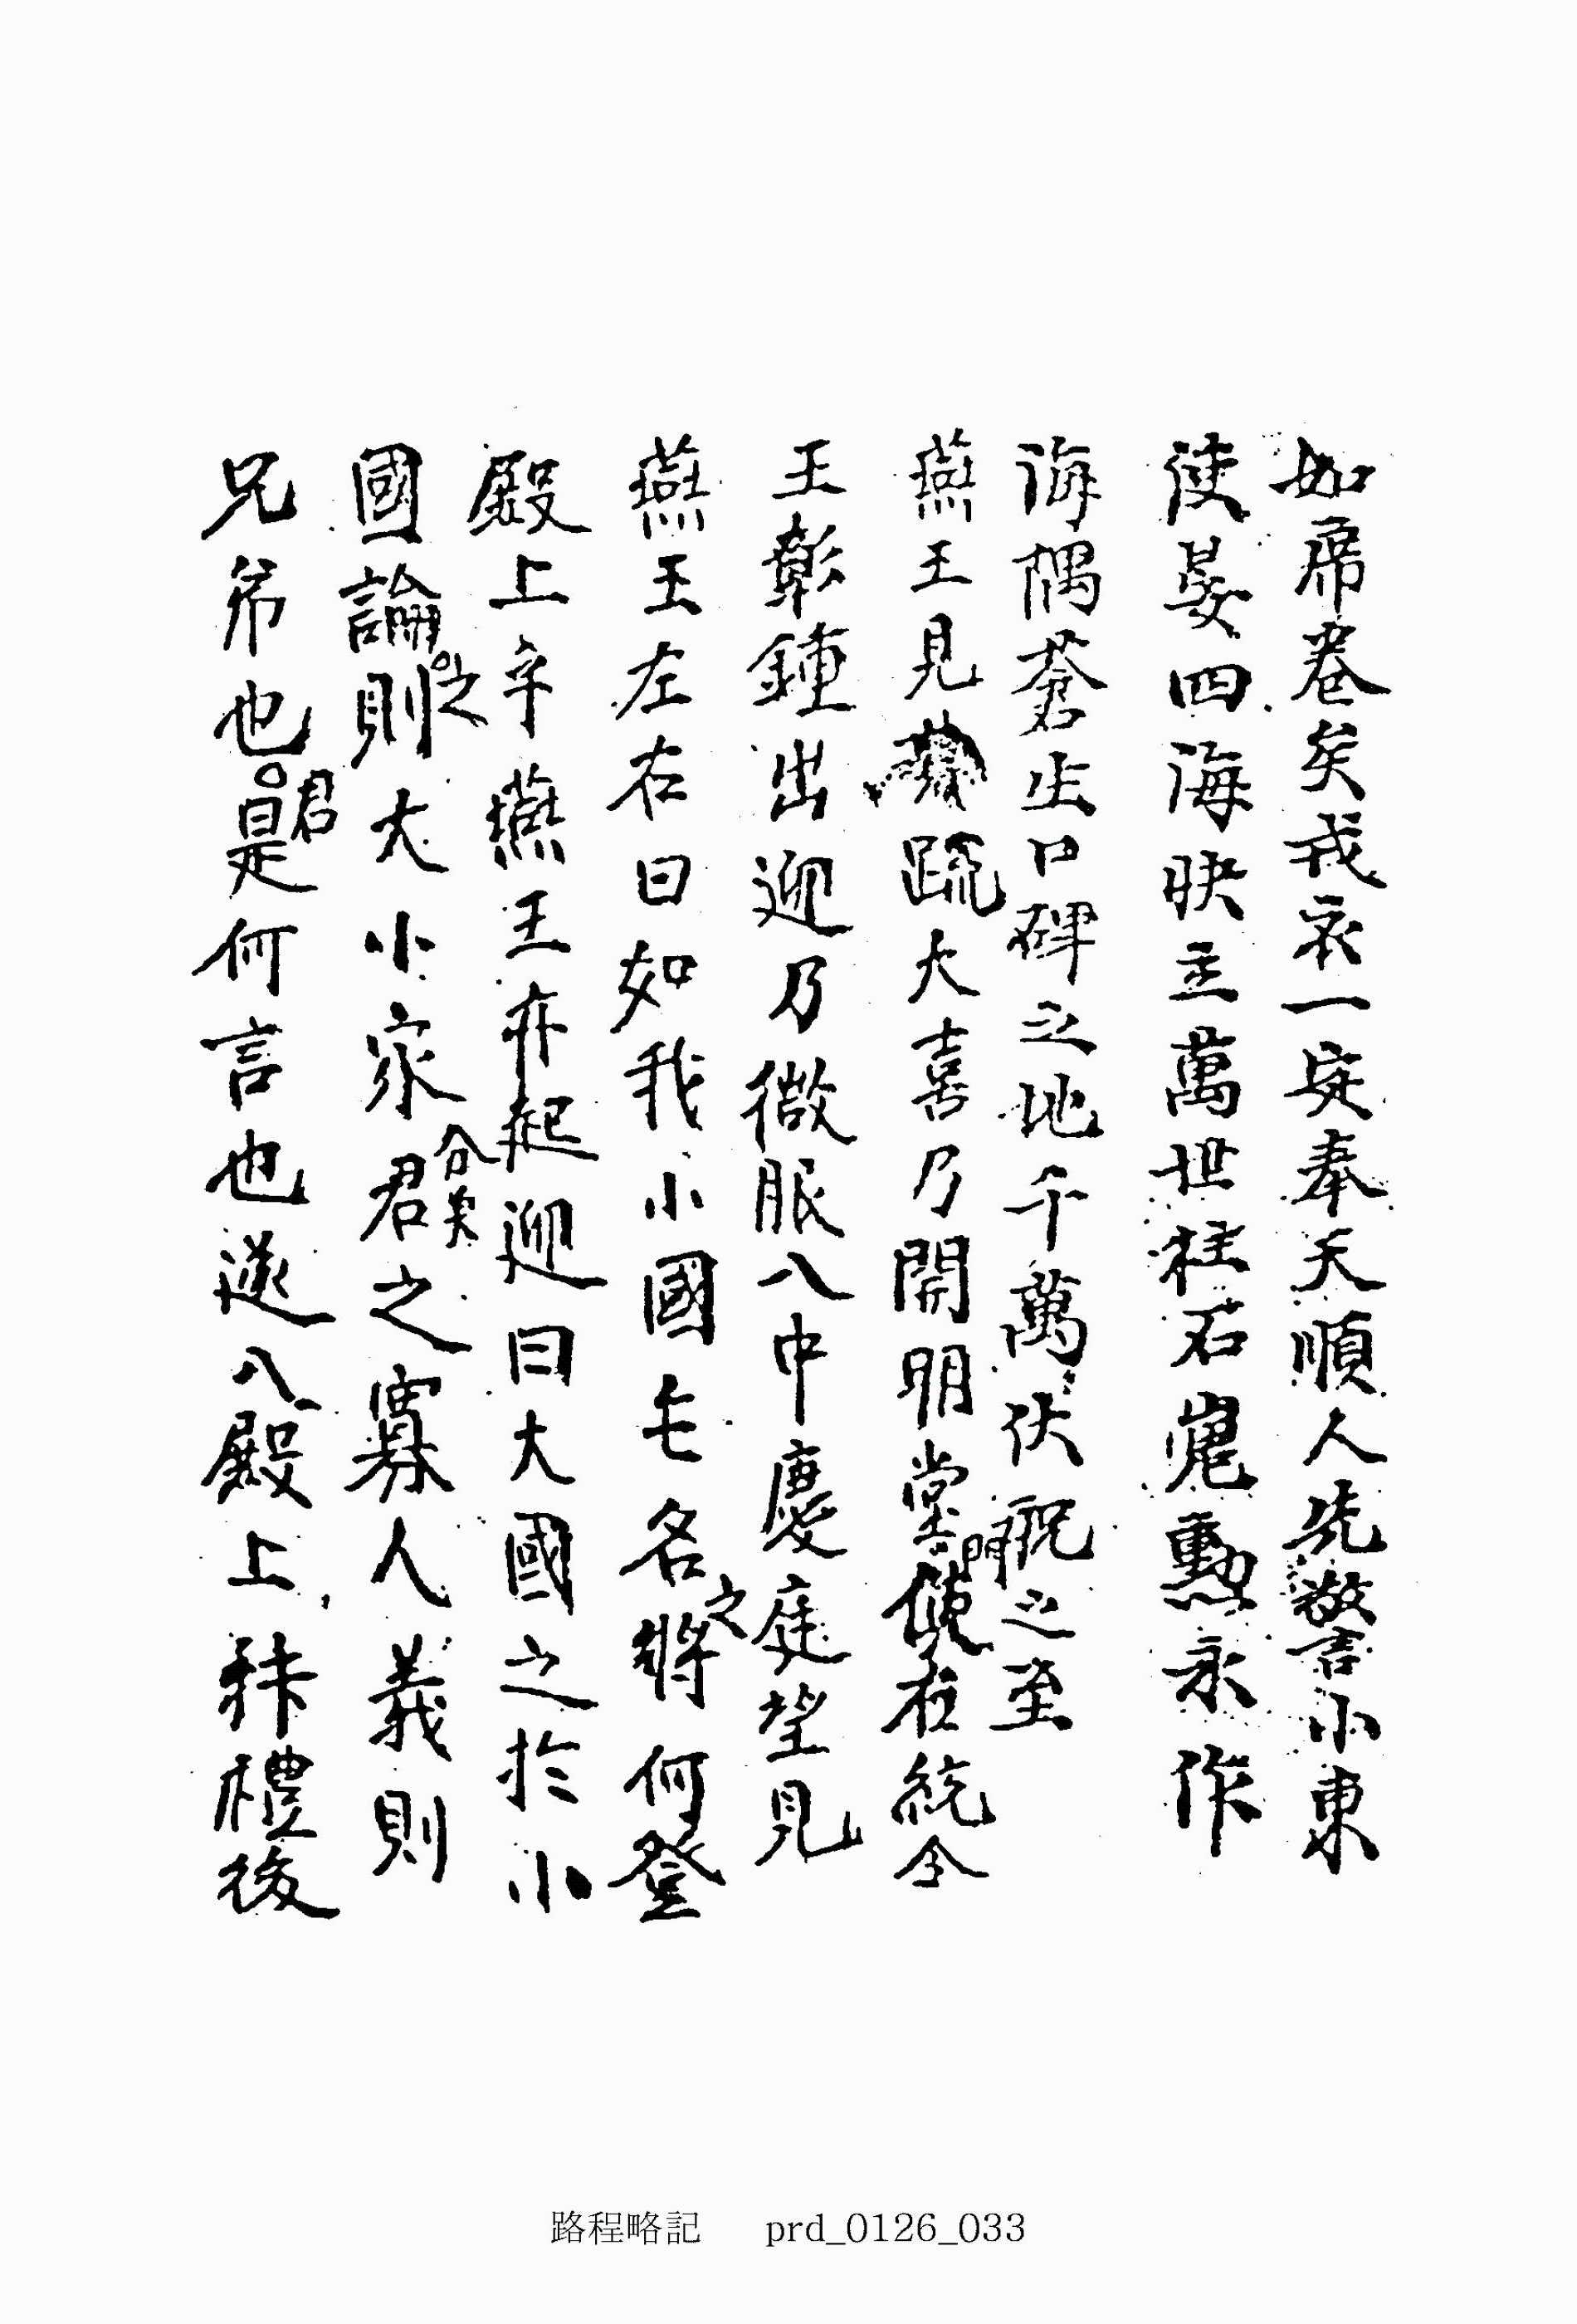 如席卷矣戎衣一定奉天順人先警小東
使晏四海映主萬世柱石嵬勳永作
海隅蒼生口碑之地千萬伏祝之至
燕王見疏大喜乃開明堂門使右統令
王彰鍾出迎乃微服入中慶庭望見
燕王左右曰如我小國亡名之將何登
殿上乎燕王亦起迎曰大國之於小
國論之則大小家君分矣之寡人義則
兄弟也君是何言也遂入殿上拜禮後
路程略記 prd_0126_033